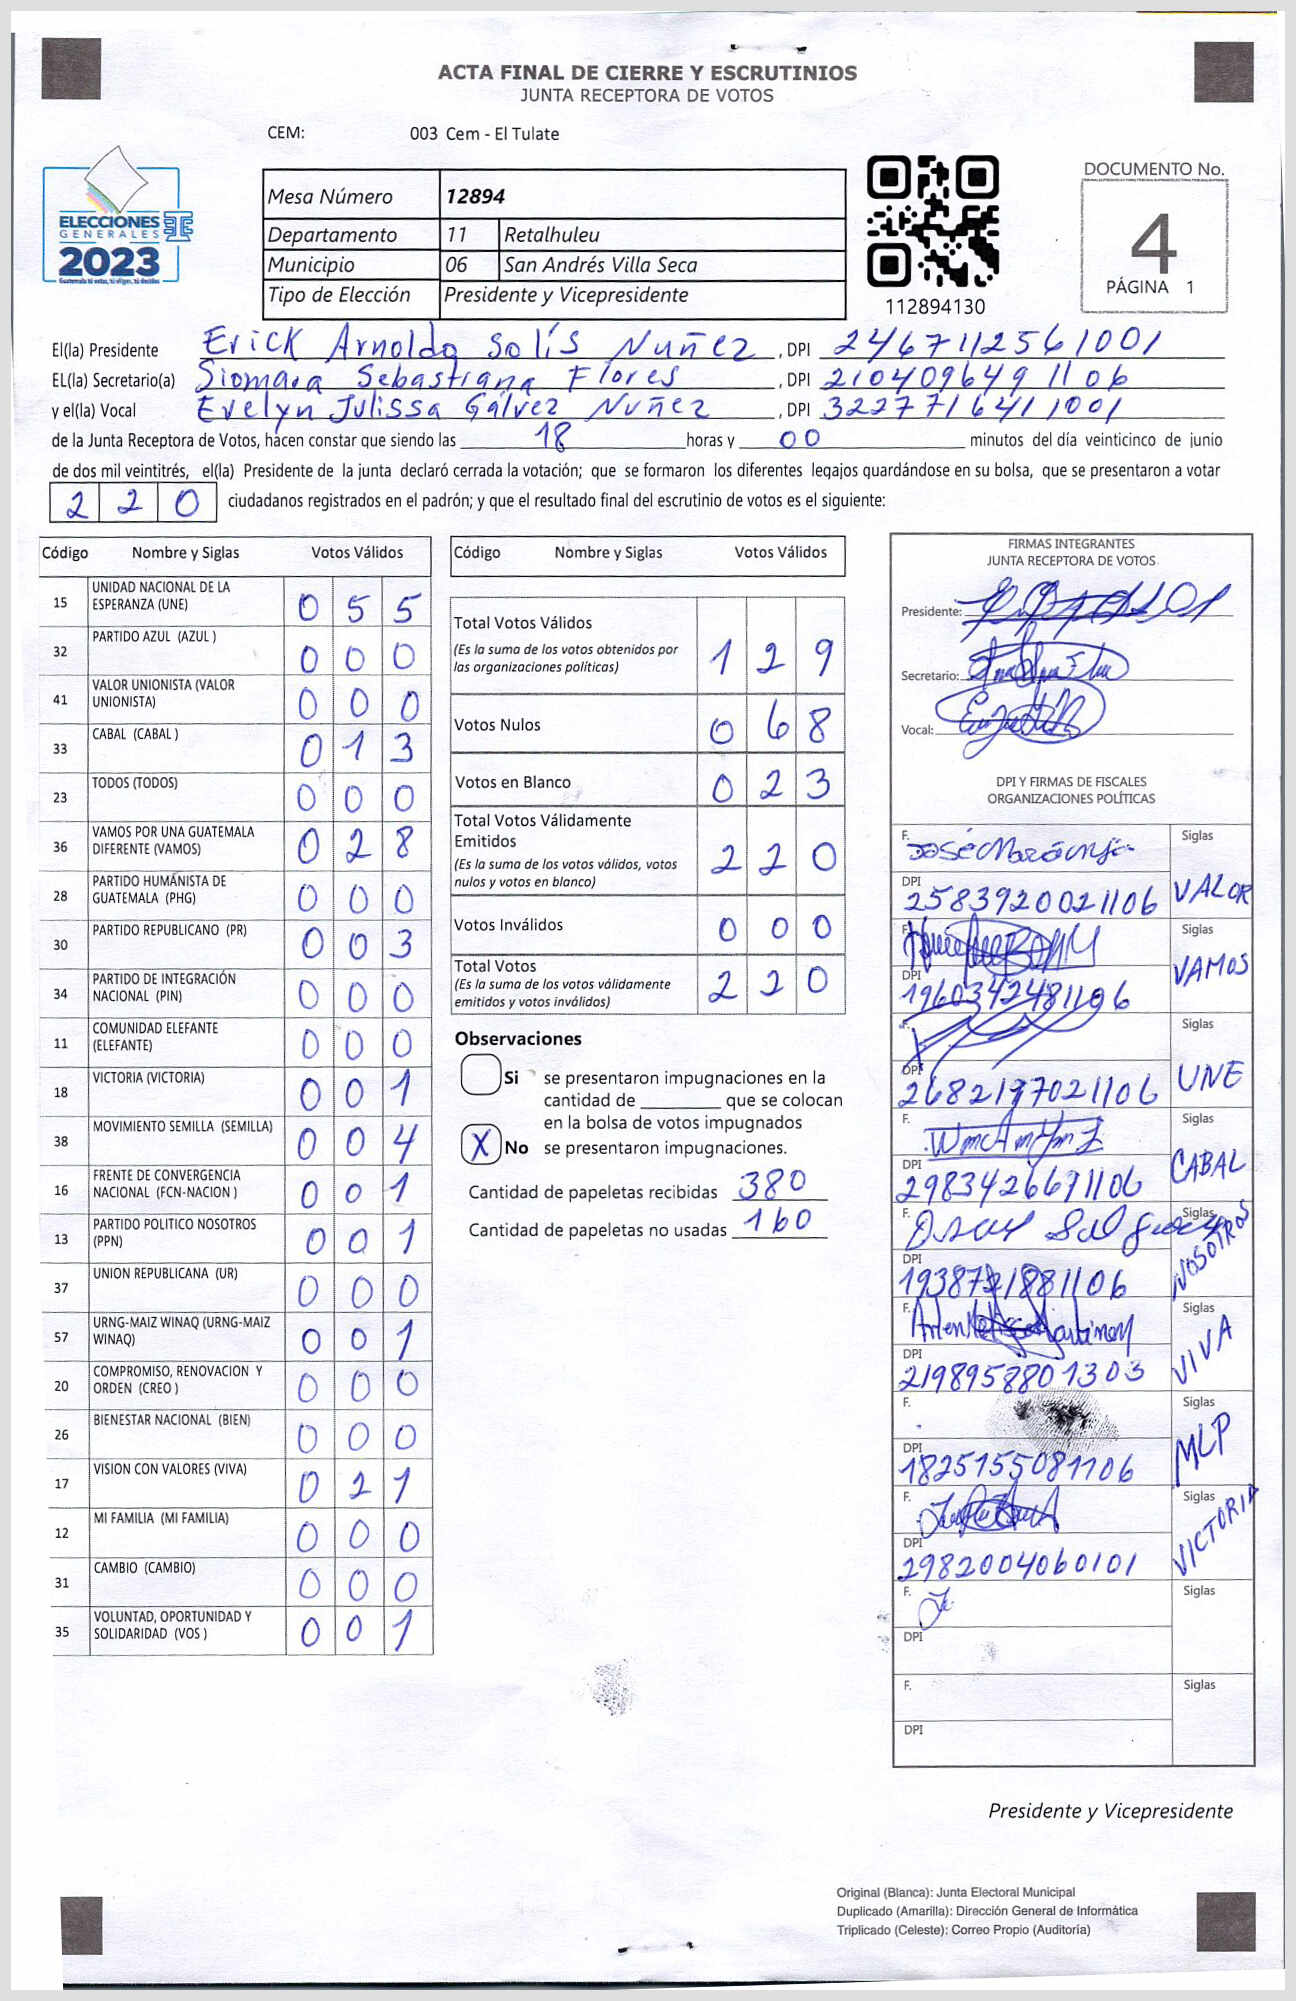 ACTA FINAL DE CIERRE Y ESCRUTINIOS
JUNTA RECEPTORA DE VOTOS
CEM: 003 Cem - El Tulate
ELECCIONES
GENERALES
2023
Guatemala tú votas, tú eliges, tú decides
Mesa Número 12894
Departamento 11 Retalhuleu
Municipio 06 San Andrés Villa Seca
Tipo de Elección Presidente y Vicepresidente
112894130
DOCUMENTO No.
4
PÁGINA 1
El(la) Presidente Erick Arnoldo Solís Nuñez , DPI 2467112561001
EL(la) Secretario(a) Siomara Sebastiana Flores , DPI 2104096491106
y el(la) Vocal Evelyn Julissa Gálvez Nuñez , DPI 3227771641001
de la Junta Receptora de Votos, hacen constar que siendo las 18 horas y 00 minutos del día veinticinco de junio
de dos mil veintitrés, el(la) Presidente de la junta declaró cerrada la votación; que se formaron los diferentes legajos quardándose en su bolsa, que se presentaron a votar
220 ciudadanos registrados en el padrón; y que el resultado final del escrutinio de votos es el siguiente:
Código Nombre y Siglas Votos Válidos
15 UNIDAD NACIONAL DE LA
ESPERANZA (UNE) 0 5 5
32 PARTIDO AZUL (AZUL ) 0 0 0
41 VALOR UNIONISTA (VALOR
UNIONISTA) 0 0 0
33 CABAL (CABAL ) 0 1 3
23 TODOS (TODOS) 0 0 0
36 VAMOS POR UNA GUATEMALA
DIFERENTE (VAMOS) 0 2 8
28 PARTIDO HUMÁNISTA DE
GUATEMALA (PHG) 0 0 0
30 PARTIDO REPUBLICANO (PR) 0 0 3
34 PARTIDO DE INTEGRACIÓN
NACIONAL (PIN) 0 0 0
11 COMUNIDAD ELEFANTE
(ELEFANTE) 0 0 0
18 VICTORIA (VICTORIA) 0 0 1
38 MOVIMIENTO SEMILLA (SEMILLA) 0 0 4
16 FRENTE DE CONVERGENCIA
NACIONAL (FCN-NACION ) 0 0 1
13 PARTIDO POLITICO NOSOTROS
(PPN) 0 0 1
37 UNION REPUBLICANA (UR) 0 0 0
57 URNG-MAIZ WINAQ (URNG-MAIZ
WINAQ) 0 0 1
20 COMPROMISO, RENOVACION Y
ORDEN (CREO ) 0 0 0
26 BIENESTAR NACIONAL (BIEN) 0 0 0
17 VISION CON VALORES (VIVA) 0 2 1
12 MI FAMILIA (MI FAMILIA) 0 0 0
31 CAMBIO (CAMBIO) 0 0 0
35 VOLUNTAD, OPORTUNIDAD Y
SOLIDARIDAD (VOS ) 0 0 1
Código Nombre y Siglas Votos Válidos
Total Votos Válidos 1 2 9
(Es la suma de los votos obtenidos por
las organizaciones políticas)
Votos Nulos 0 6 8
Votos en Blanco 0 2 3
Total Votos Válidamente
Emitidos 2 2 0
(Es la suma de los votos válidos, votos
nulos y votos en blanco)
Votos Inválidos 0 0 0
Total Votos 2 2 0
(Es la suma de los votos válidamente
emitidos y votos inválidos)
Observaciones
Si se presentaron impugnaciones en la
cantidad de ________ que se colocan
en la bolsa de votos impugnados
X No se presentaron impugnaciones.
Cantidad de papeletas recibidas 380
Cantidad de papeletas no usadas 160
FIRMAS INTEGRANTES
JUNTA RECEPTORA DE VOTOS
Presidente:
Secretario:
Vocal:
DPI Y FIRMAS DE FISCALES
ORGANIZACIONES POLÍTICAS
F. José Siglas
DPI 2583920021106 VALOR
F. Siglas
DPI 1960342481106 VAMOS
F. Siglas
DPI 2682197021106 UNE
F. Siglas
DPI 2983426671106 CABAL
F. Oscar Siglas
DPI 1938721881106 NOSOTROS
F. Siglas
DPI 2198958801303 VIVA
F. Siglas
DPI 1825155081106 MLP
F. Siglas
DPI 2982004060101 VICTORIA
F. Siglas
DPI
F. Siglas
DPI
Presidente y Vicepresidente
Original (Blanca): Junta Electoral Municipal
Duplicado (Amarilla): Dirección General de Informática
Triplicado (Celeste): Correo Propio (Auditoría)